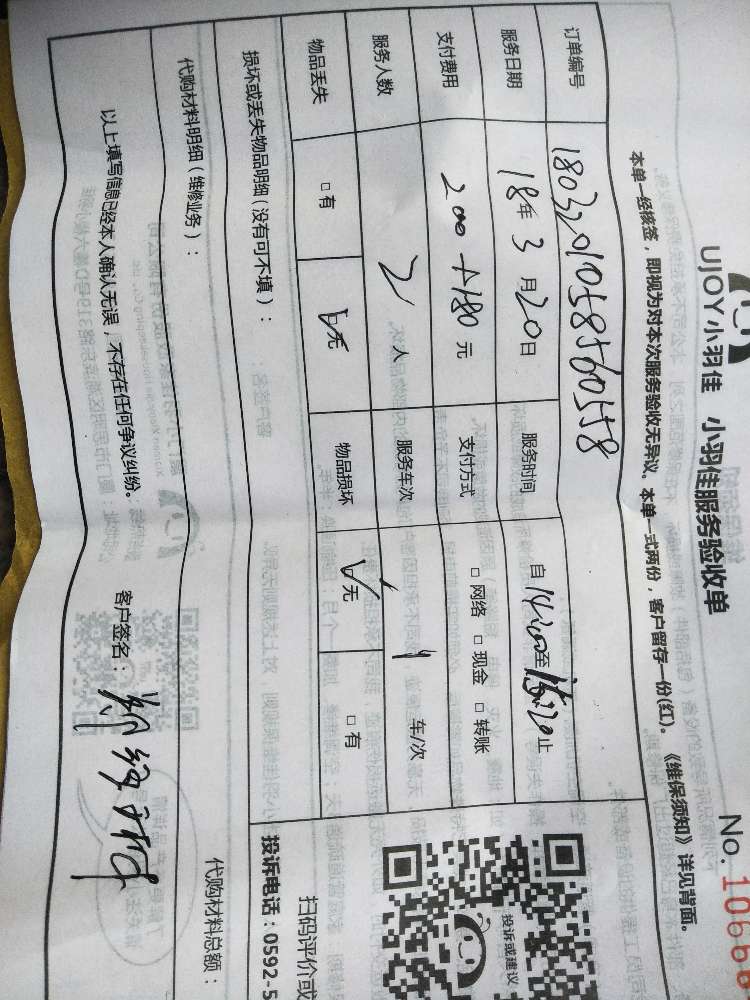 UJOY小羽佳 小羽佳服务验收单
No. 10666
本单一经核签，即视为对本次服务验收无异议。本单一式两份，客户留存一份(红)。《维保须知》详见背面。
订单编号 1803201058560558
服务日期 18年3月20日 服务时间 自14:00至15:20止
支付费用 200+180元 支付方式 □网络 □现金 □转账
服务人数 2人 服务车次 1车/次
物品丢失 □有 ☑无 物品损坏 ☑无 □有
损坏或丢失物品明细(没有可不填)：
投诉或建议
扫码评价或
投诉电话：0592-5
代购材料明细(维修业务)：
代购材料总额：
以上填写信息已经本人确认无误，不存在任何争议纠纷。 客户签名：